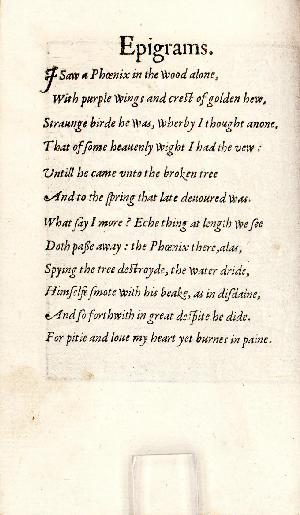 Epigrams.
I Saw a Phœnix in the wood alone,
With purple wings and crest of golden hew,
Straunge birde he was, wherby I thought anone,
That of some heauenly wight I had the vew:
Vntill he came vnto the broken tree
And to the spring that late deuoured was.
What say I more? Eche thing at length we see
Doth passe away: the Phœnix there, alas,
Spying the tree destroyde, the water dride,
Himselfe smote with his beake, as in disdaine,
And so forthwith in great despite he dide.
For pitie and loue my heart yet burnes in paine.